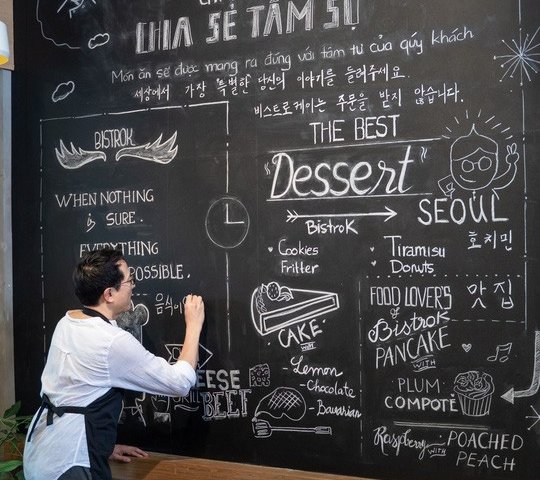 CHIA SẺ TÂM SỰ
Món ăn sẽ được mang ra đúng với tâm tư của quý khách
세상에서 가장 특별한 당신의 이야기를 들려주세요.
비스트로케이는 주문을 받지 않습니다.
BISTROK
WHEN NOTHING
is SURE.
EVERYTHING
POSSIBLE.
음식이
CHEESE
BEEF
THE BEST
"Dessert"
BistroK
SEOUL
호치민
Cookies
Fritter
Tiramisu
Donuts
CAKE
WITH
- Lemon
- Chocolate
- Bavarian
FOOD LOVER'S
of
BistroK
PANCAKE
WITH
맛집
PLUM
COMPOTE
Raspberry
POACHED
PEACH